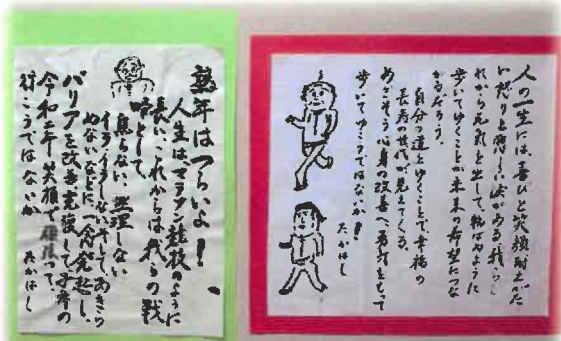 人の一生には、喜びと笑顔耐えがた
い怒りと しい涙がある 我らこ
れから元気を出して、 ように
歩いてゆくことが未来の希望につな
がるだろう。
自分の道とゆくことで、幸福の
長寿の世代が見えてくる。
めざそう心身の改善へ勇気をもって
歩いてゆこうではないか!
たかはし
熟年はつらいよ!
人生はマラソン競技のように
長い、これからは我らの戦
として、
焦らない 無理しない
イライラしない、そして、あきら
めないなどに、一念発起し、
バリアを改善克服して の
令和三年 笑顔で頑張って、
行こうではないか
たかはし